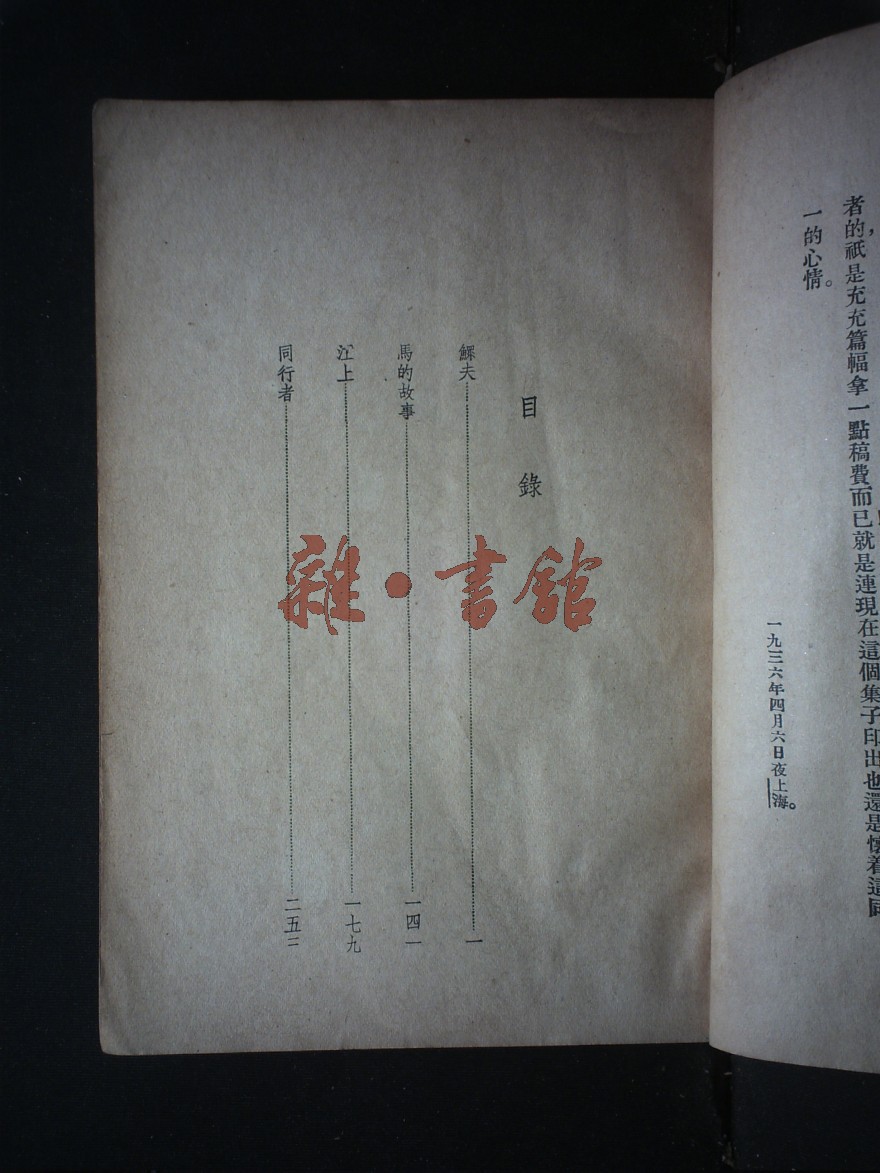 者的祇是充充篇幅拿一點稿費而已就是連現在這個集子印出也還是懷着這同
一的心情。
一九三六年四月六日夜上海。
目錄
鰥夫 一
馬的故事 一四一
江上 一七九
同行者
雜·書館